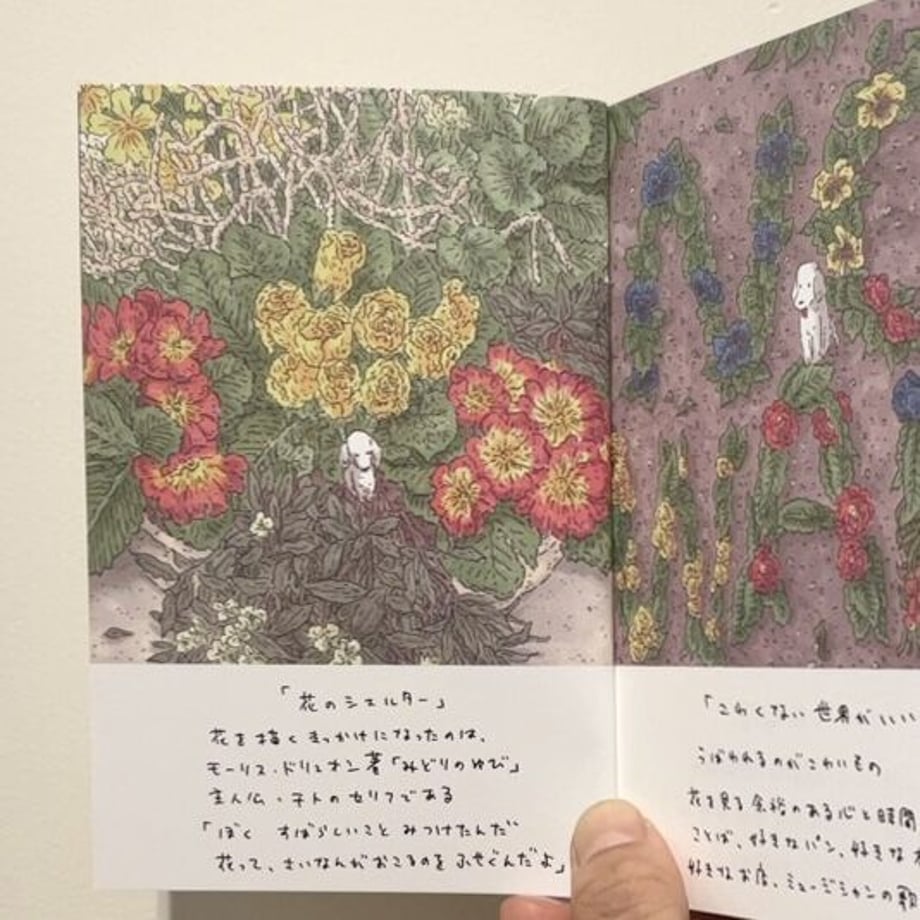 「花のシェルター」
花を描くきっかけになったのは、
モーリス・ドリュオン著「みどりのゆび」
主人公・チトのセリフである
「ぼく すばらしいこと みつけたんだ
花って、さいなんがおこるのを ふせぐんだよ」
NO
WA
「こわくない世界がいい
うばわれるのがこわいもの
花を見る余裕のある心と時間
ことば、好きなパン、好きな
好きなお店、ミュージシャンの歌